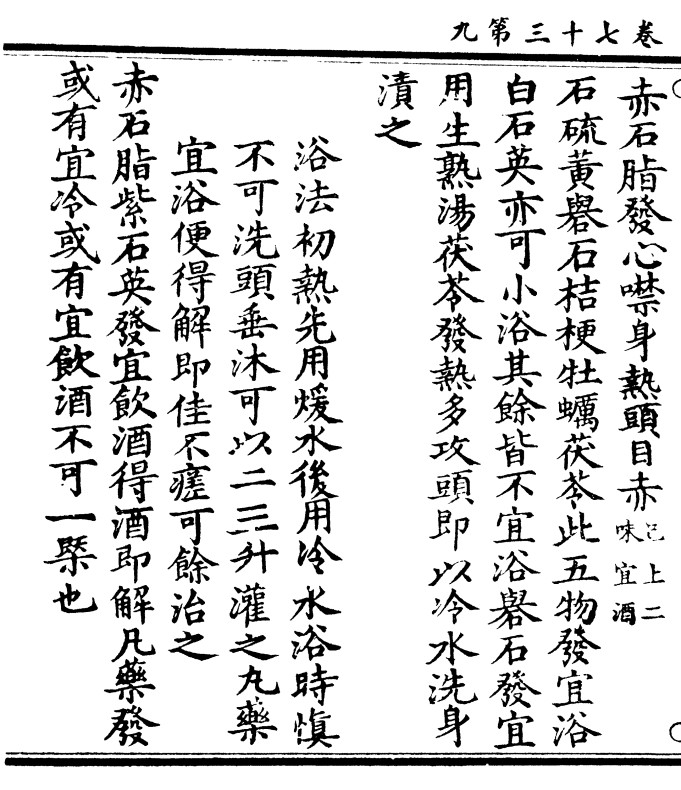 卷七十三第九
赤石脂發心噤身熱頭目赤已上二味宜酒
石硫黃礜石桔梗牡蠣茯苓此五物發宜浴
白石英亦可小浴其餘皆不宜浴礜石發宜
用生熟湯茯苓發熱多攻頭即以冷水洗身
漬之
浴法初熱先用煖水後用冷水浴時慎
不可洗頭垂沐可以二三升灌之丸藥
宜浴便得解即佳不瘥可餘治之
赤石脂紫石英發宜飲酒得酒即解凡藥發
或有宜冷或有宜飲酒不可一槩也